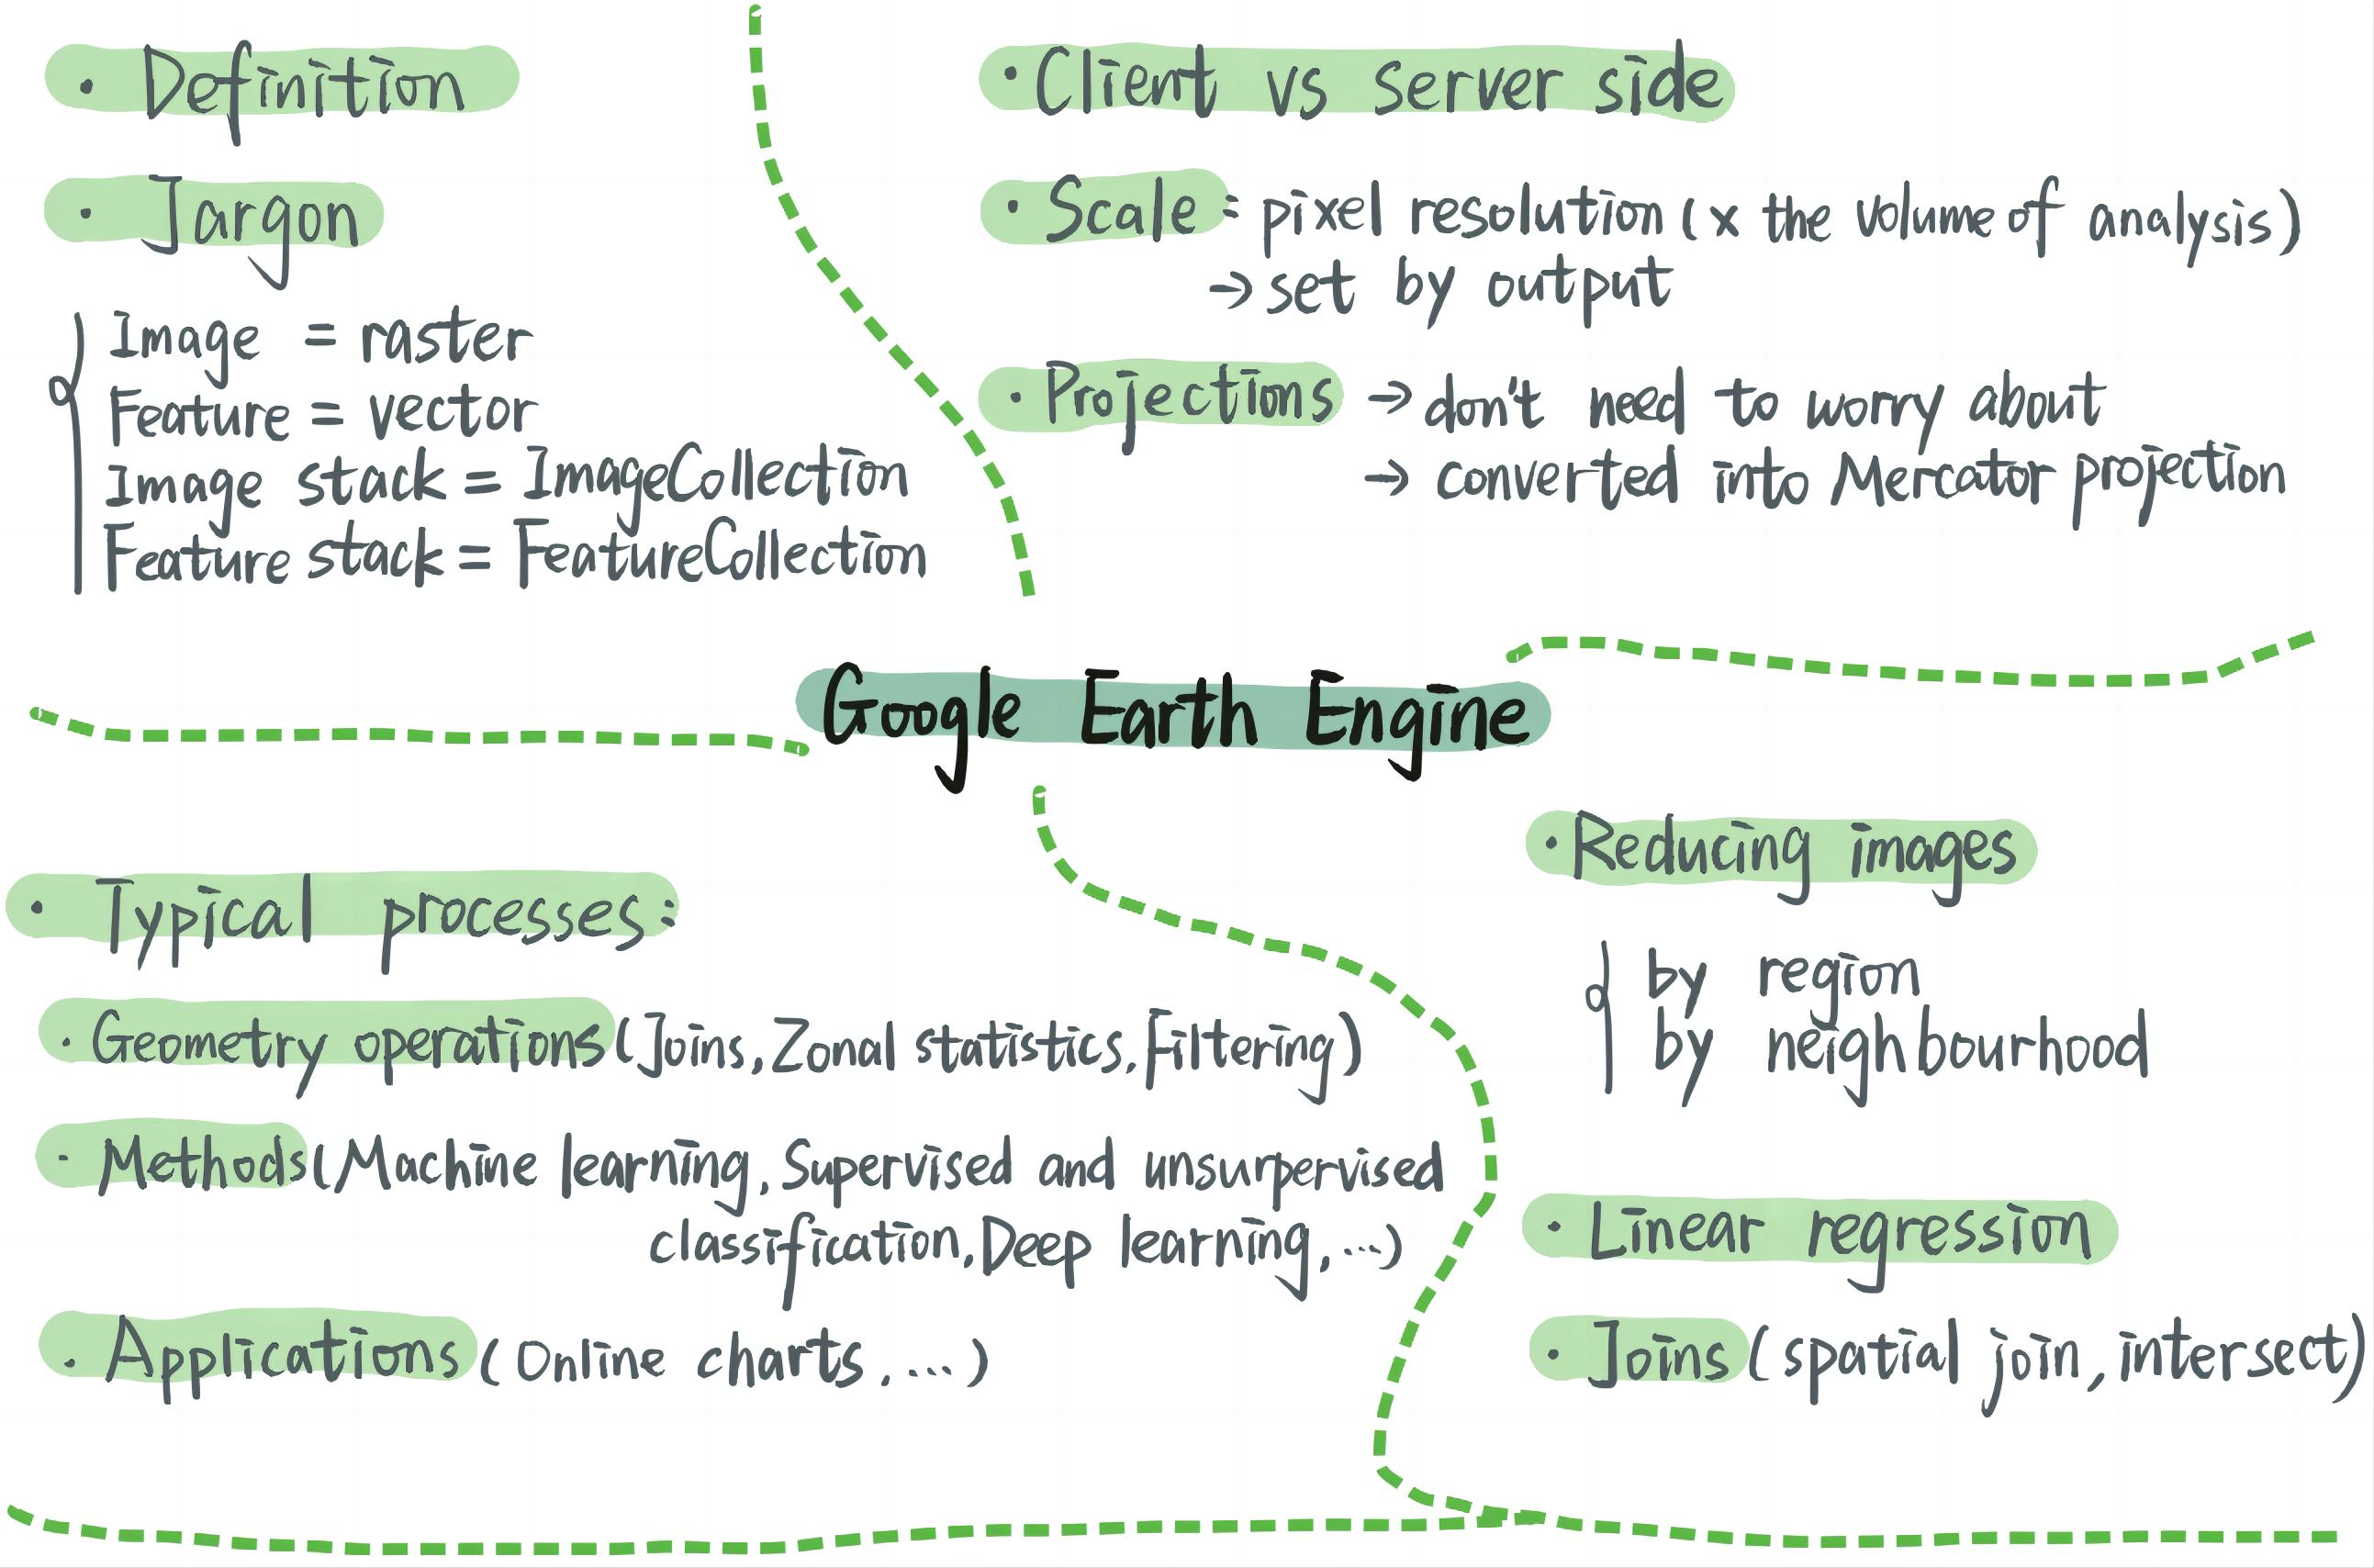 · Definition
· Jargon
Image = raster
Feature = vector
Image stack = ImageCollection
Feature stack = FeatureCollection
· Client vs server side
· Scale: pixel resolution (x the volume of analysis)
→ set by output
· Projections → don't need to worry about
→ converted into Mercator projection
Google Earth Engine
· Typical processes:
· Geometry operations (Joins, Zonal statistics, Filtering)
· Methods (Machine learning, Supervised and unsurpervised
classification, Deep learning, ...)
· Applications (Online charts, ...)
· Reducing images
by region
by neighbourhood
· Linear regression
· Joins (spatial join, intersect)